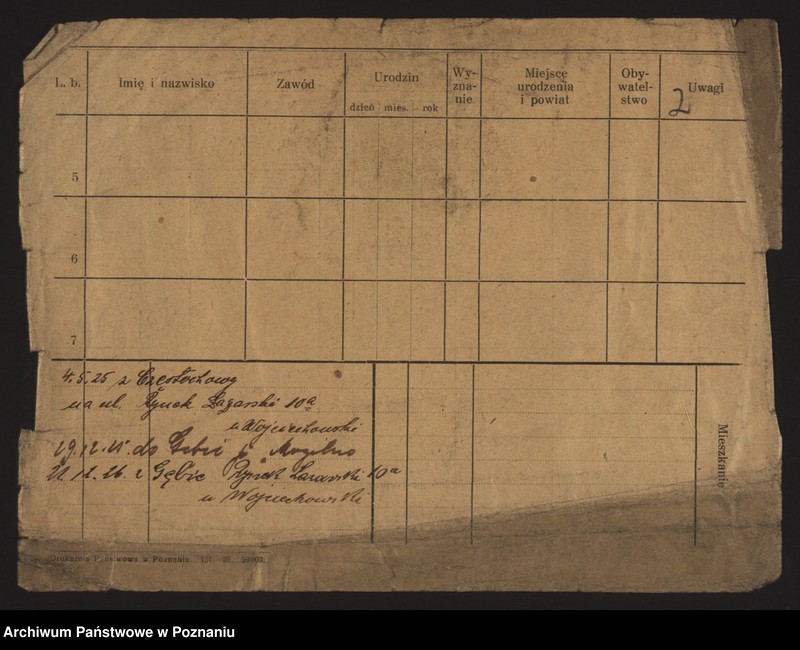 L. b. Imię i nazwisko Zawód Urodzin Wy- Miejsce Oby- Uwagi
zna- urodzenia watel-
nie i powiat stwo
dzień mies. rok
2
5
6
7
4.5.25 z Częstochowy
na ul. Rynek Łazarski 10a
u Wojciechowski
29.12.25 do Gębic p. Mogilno
21.12.26 z Gębic Rynek Łazarski 10a
u Wojciechowski
Mieszkanie
Drukarnia Państwowa w Poznaniu.
Archiwum Państwowe w Poznaniu